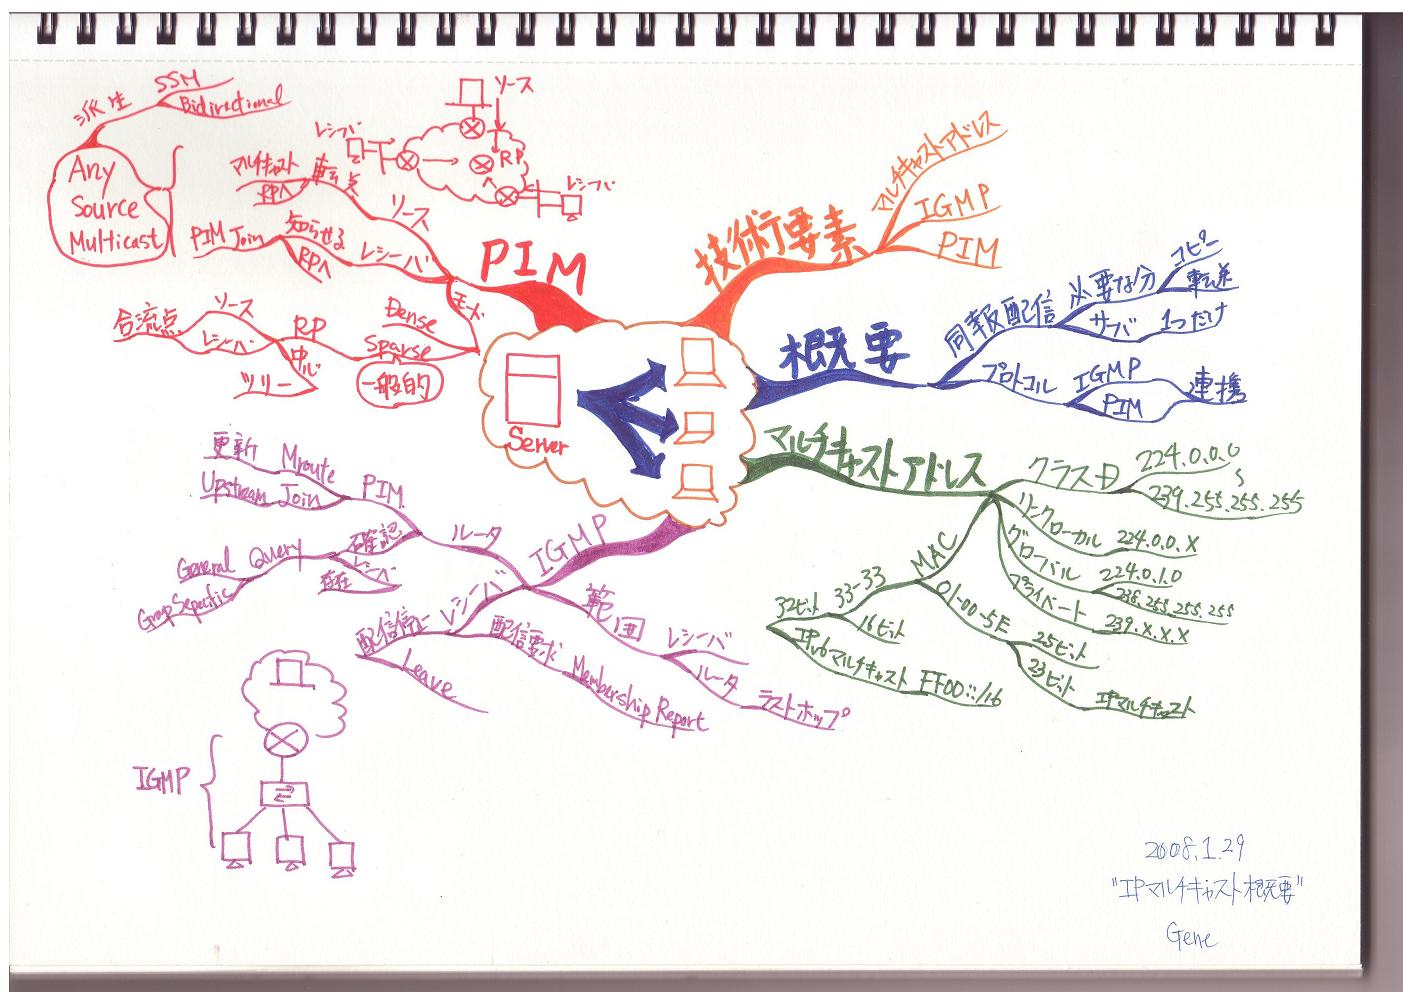 派生
SSM
Bidirectional
Any
Source
Multicast
ソース
レシーバ
RP
レシーバ
マルチキャスト
RPへ
転送
ソース
PIM Join
知らせる
RPへ
レシーバ
PIM
モード
Dense
Sparse
一般的
合流点
ソース
レシーバ
RP
中心
ツリー
技術要素
マルチキャストアドレス
IGMP
PIM
概要
同報配信
必要な分
コピー
転送
サーバ
1つだけ
プロトコル
IGMP
PIM
連携
Server
マルチキャストアドレス
クラスD
224.0.0.0
〜
239.255.255.255
リンクローカル
224.0.0.X
グローバル
224.0.1.0
238.255.255.255
プライベート
239.X.X.X
MAC
33-33
32ビット
16ビット
IPv6マルチキャスト FF00::/16
01-00-5E
25ビット
23ビット
IPマルチキャスト
IGMP
ルータ
PIM
更新 Mroute
Upstream Join
確認
レシーバ
存在
General Query
Group Sepecific
レシーバ
配信停止
Leave
配信要求 Membership Report
範囲
レシーバ
ルータ
ラストホップ
IGMP
2008.1.29
"IPマルチキャスト概要"
Gene